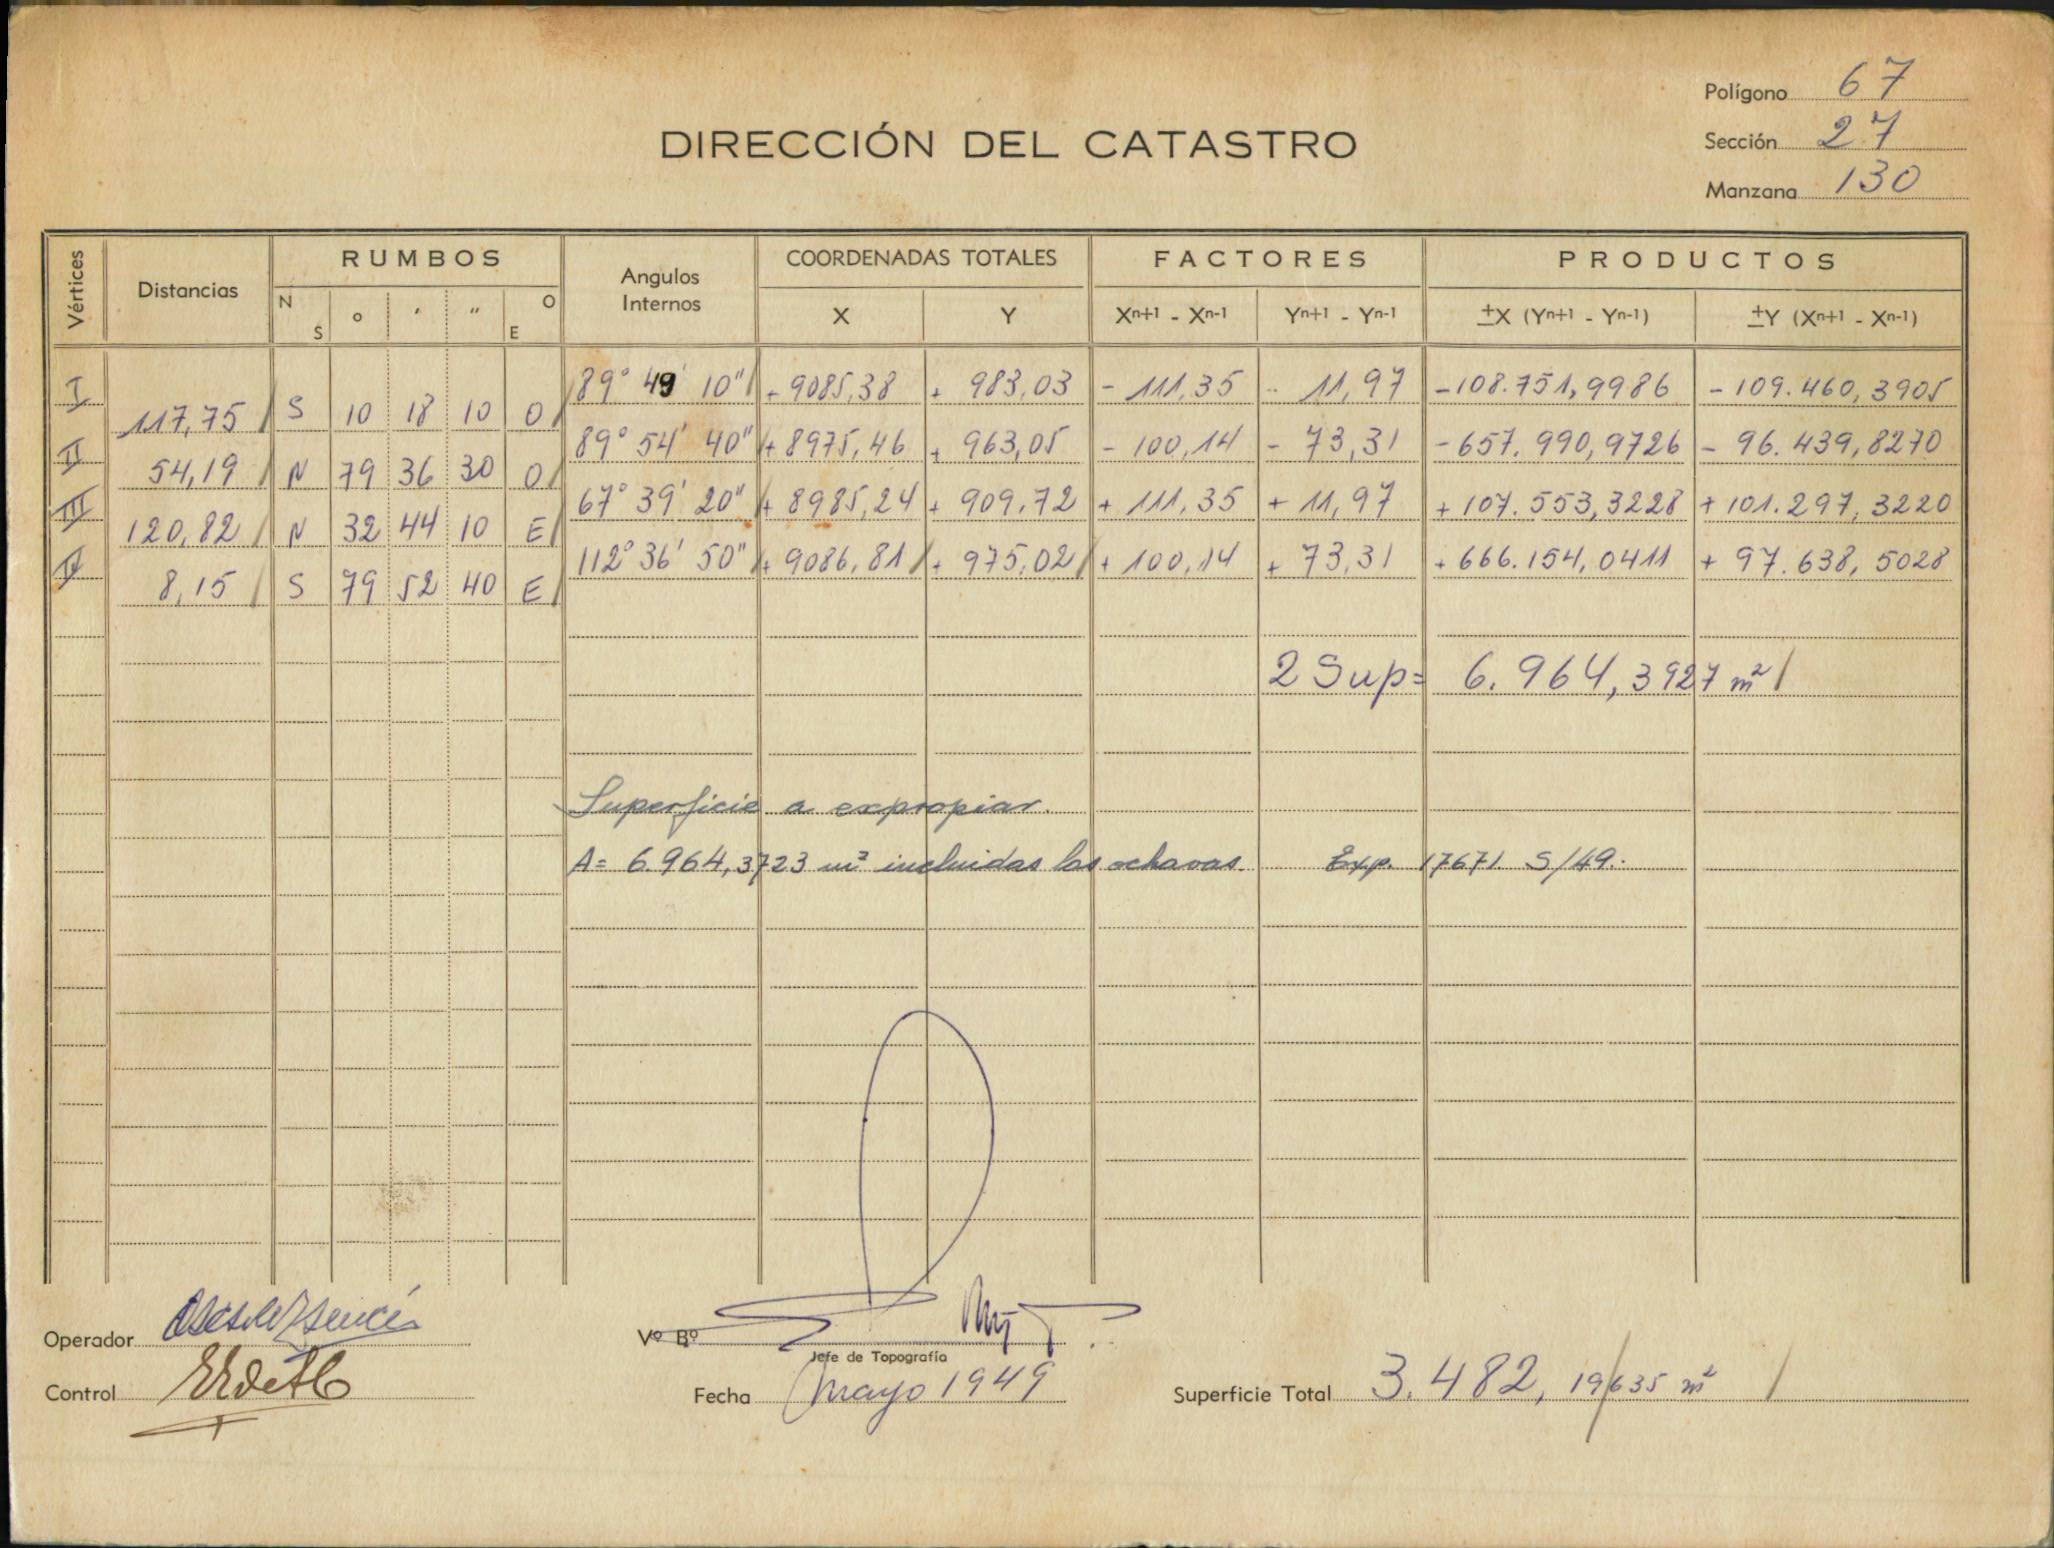 Polígono 67
DIRECCIÓN DEL CATASTRO
Sección 27
Manzana 130
Vértices Distancias RUMBOS Angulos Internos COORDENADAS TOTALES FACTORES PRODUCTOS
N S ° ' " O E X Y Xn+1 - Xn-1 Yn+1 - Yn-1 ±X (Yn+1 - Yn-1) ±Y (Xn+1 - Xn-1)
I 89° 49' 10" + 9085,38 + 983,03 - 111,35 - 11,97 -108.751,9986 - 109.460,3905
117,75 S 10 18 10 O
II 89° 54' 40" + 8975,46 + 963,05 - 100,14 - 73,31 -657.990,9726 - 96.439,8270
54,19 N 79 36 30 O
III 67° 39' 20" + 8985,24 + 909,72 + 111,35 + 11,97 + 107.553,3228 + 101.297,3220
120,82 N 32 44 10 E
IV 112° 36' 50" + 9086,81 + 975,02 + 100,14 + 73,31 + 666.154,0411 + 97.638,5028
8,15 S 79 52 40 E
2 Sup= 6.964,3927 m²
Superficie a expropiar.
A= 6.964,3723 m² incluidas las ochavas. Exp. 17671. S/49.
Operador
Vº Bº
Jefe de Topografía
Control
Fecha mayo 1949
Superficie Total 3.482,19635 m²